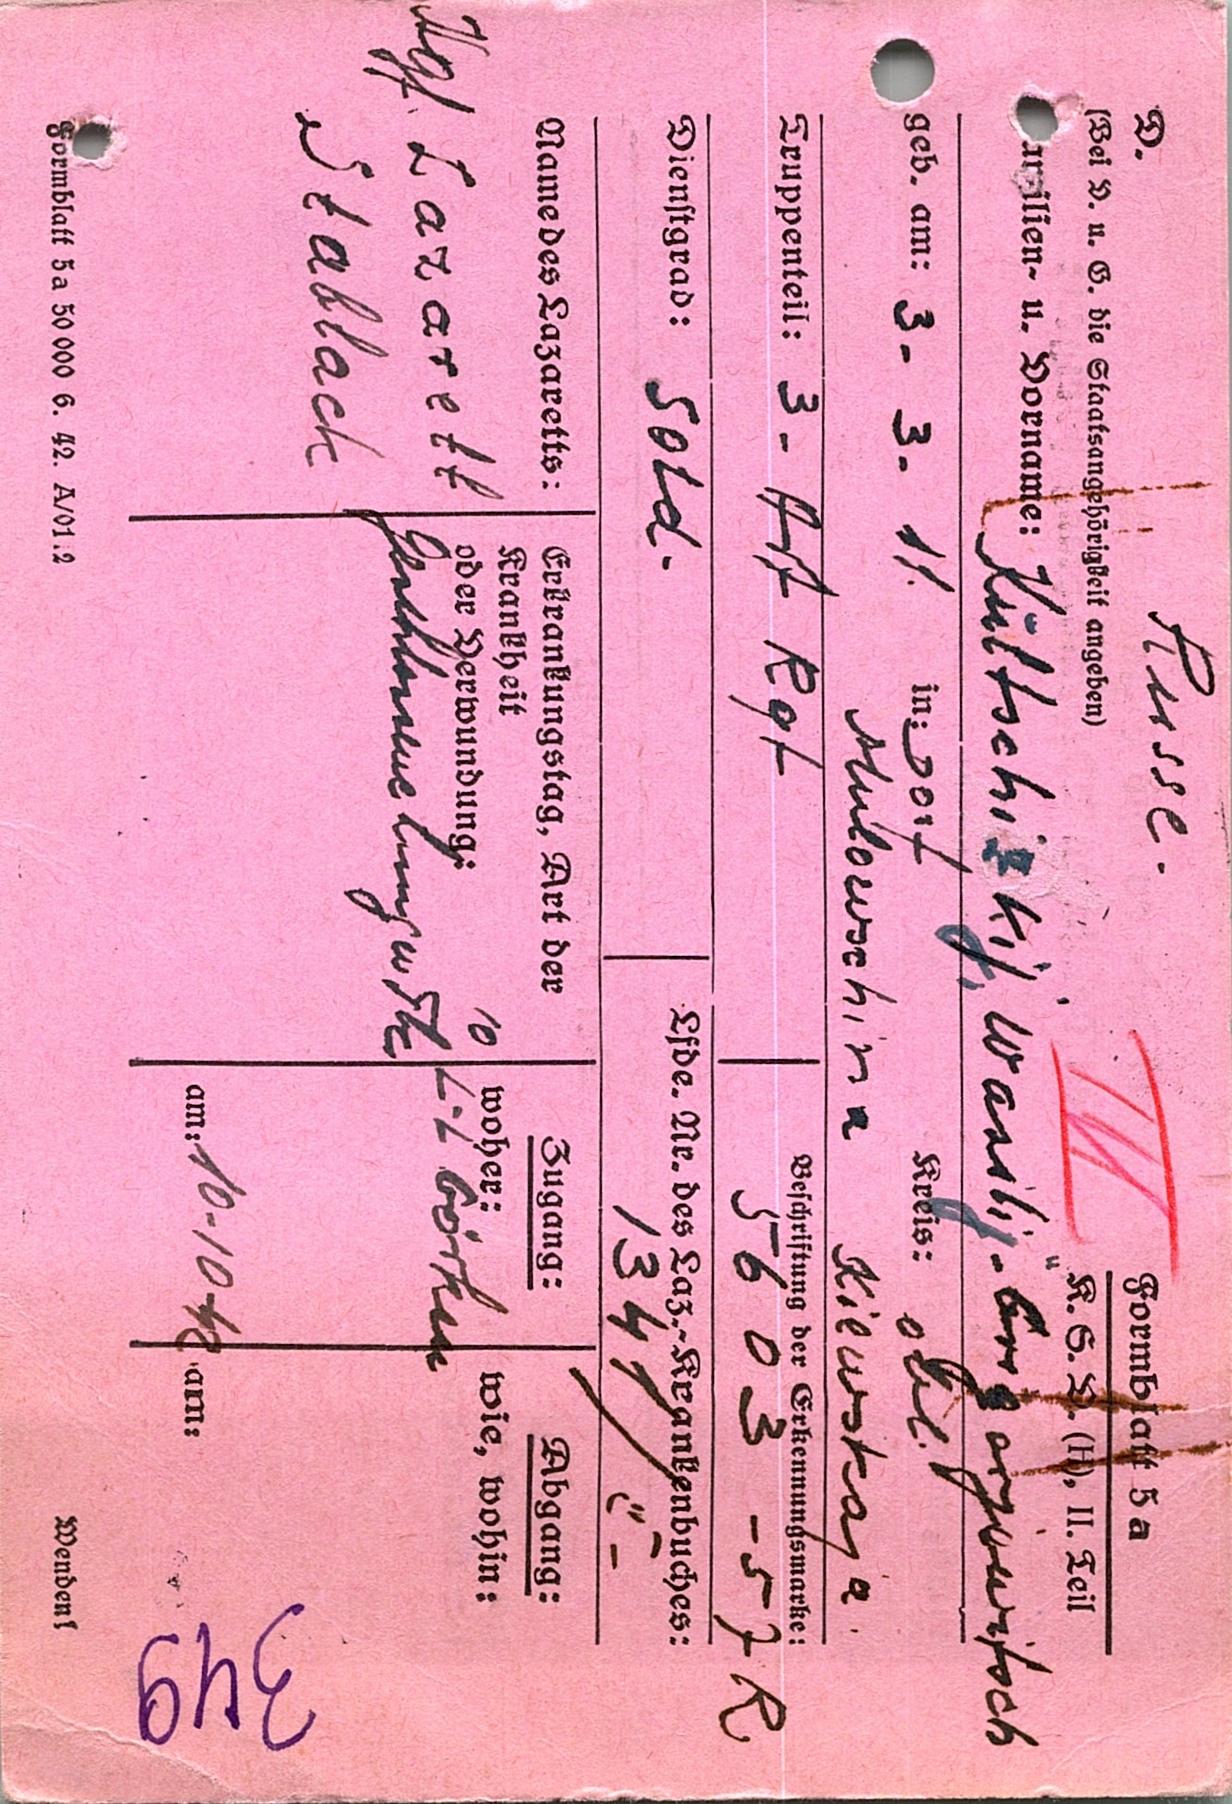 D. Russe. III Formblatt 5a
(Bei D. u. G. die Staatsangehörigkeit angeben) K. S. D. (H), II. Teil
Familien- u. Vorname: Kültschizkij, Wassilij
geb. am: 3. 3. 11. in: Dorf Kreis: obl.
Mulowschina Kiewskaja.
Truppenteil: 3. Art Rgt Beschriftung der Erkennungsmarke:
5603 - 57 R
Dienstgrad: Sold. Lfde. Nr. des Laz.-Krankenbuches:
1341/"ü"-
Name des Lazaretts: Erkrankungstag, Art der Krankheit oder Verwundung: Zugang: Abgang:
woher: wie, wohin:
Kgf. Lazarett L.L Görken
Stablack
am: 10-10-42 am:
349
Formblatt 5a 50 000 6. 42. A/01.2 Wenden!